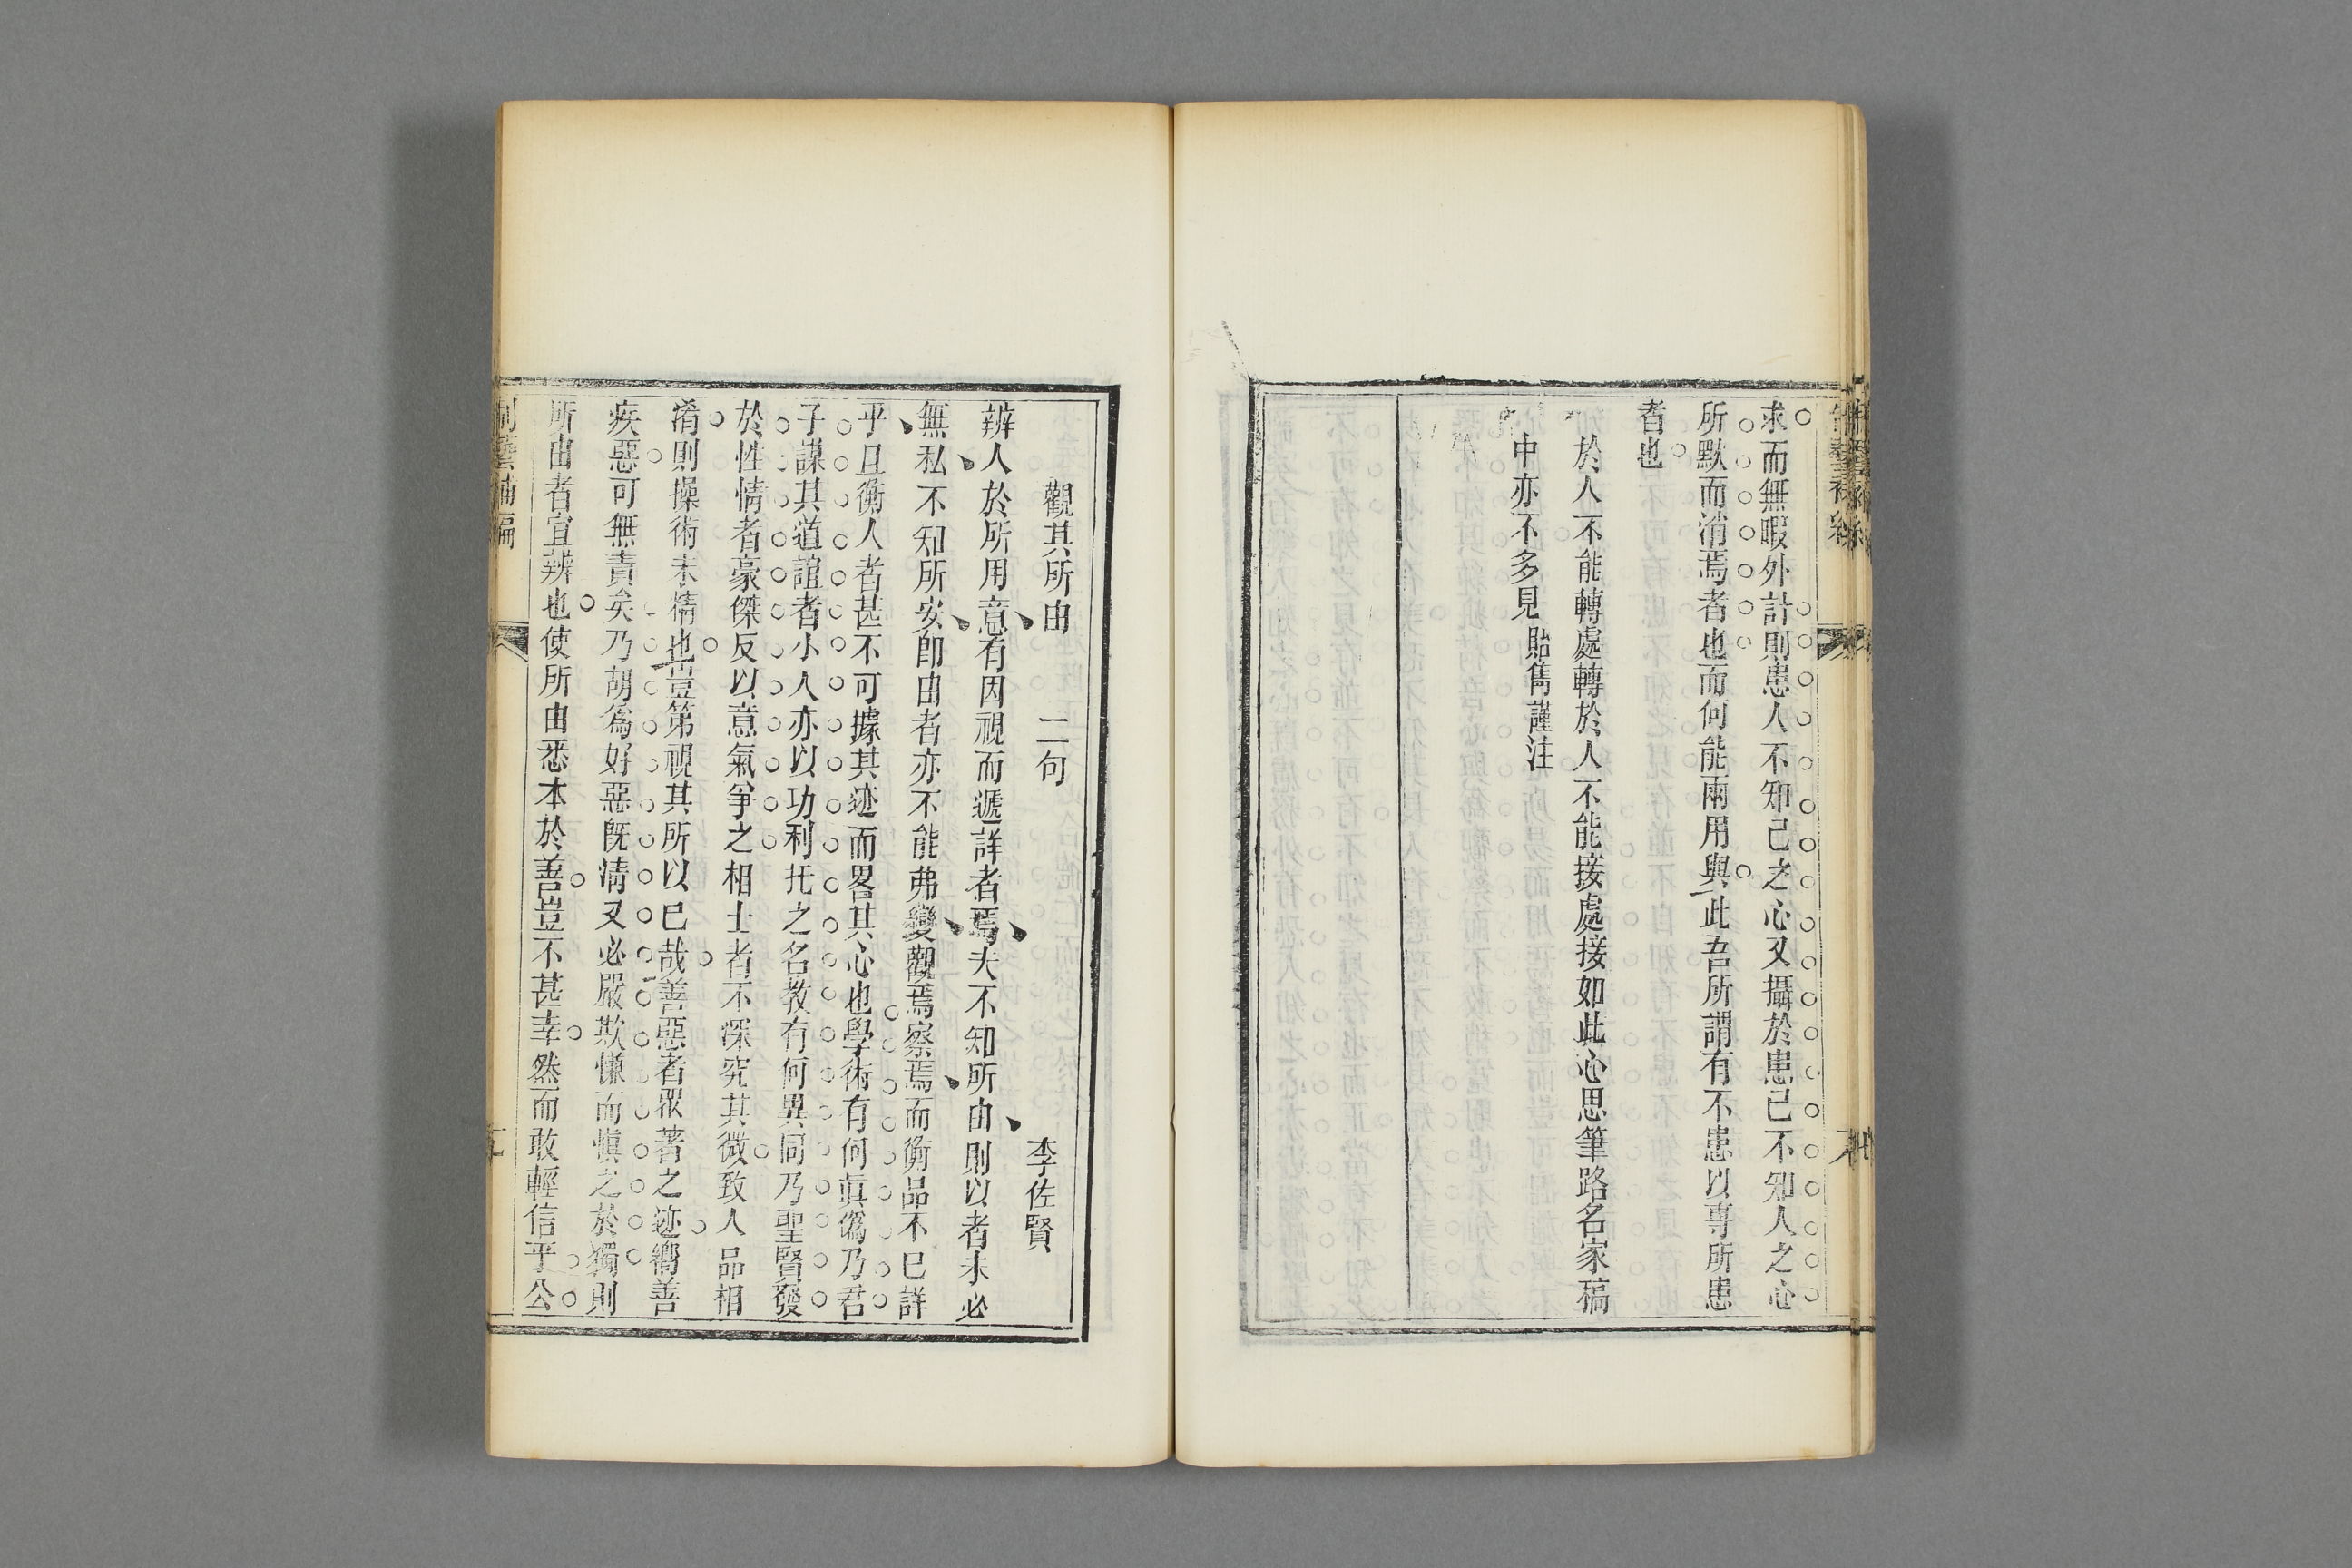 求而無暇外計則患人不知己之心又攝於患己不知人之心
所默而消焉者也而何能兩用與此吾所謂有不患以專所患
者也
於人不能轉處轉於人不能接處接如此心思筆路名家稿
中亦不多見 貽雋謹注
觀其所由 二句 李佐賢
辨人於所用意有因視而遞詳者焉夫不知所由則以者未必
無私不知所安卽由者亦不能弗變觀焉察焉而衡品不已詳
乎且衡人者甚不可據其迹而畧其心也學術有何眞僞乃君
子謀其道誼者小人亦以功利托之名教有何異同乃聖賢發
於性情者豪傑反以意氣爭之相士者不深究其微致人品相
淆則操術未精也豈第視其所以已哉善惡者衆著之迹嚮善
疾惡可無責矣乃胡爲好惡旣淸又必嚴欺慊而愼之於獨則
所由者宜辨也使所由悉本於善豈不甚幸然而敢輕信乎公